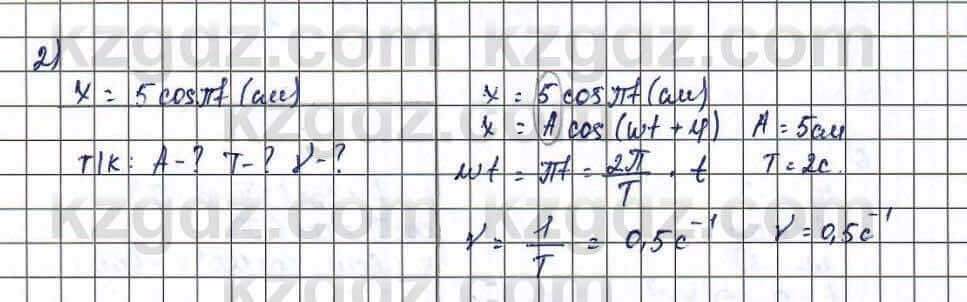 2)
x = 5 cos πt (см)
Т/к: A - ? T - ? ν - ?
x = 5 cos πt (см)
x = A cos (ωt + φ) A = 5 см
ωt = πt = 2π/T · t T = 2с.
ν = 1/T = 0,5 с⁻¹ ν = 0,5 с⁻¹
kzgdz.com kzgdz.com
kzgdz.com
kzgdz.com kzgdz.com